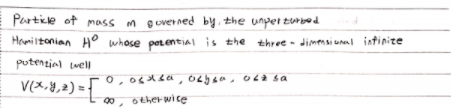 Particle of mass m governed by, the unperturbed
Hamiltonian H⁰ whose potential is the three-dimensional infinite
potential well
V(x,y,z) = { 0, 0≤x≤a, 0≤y≤a, 0≤z≤a
∞, otherwise